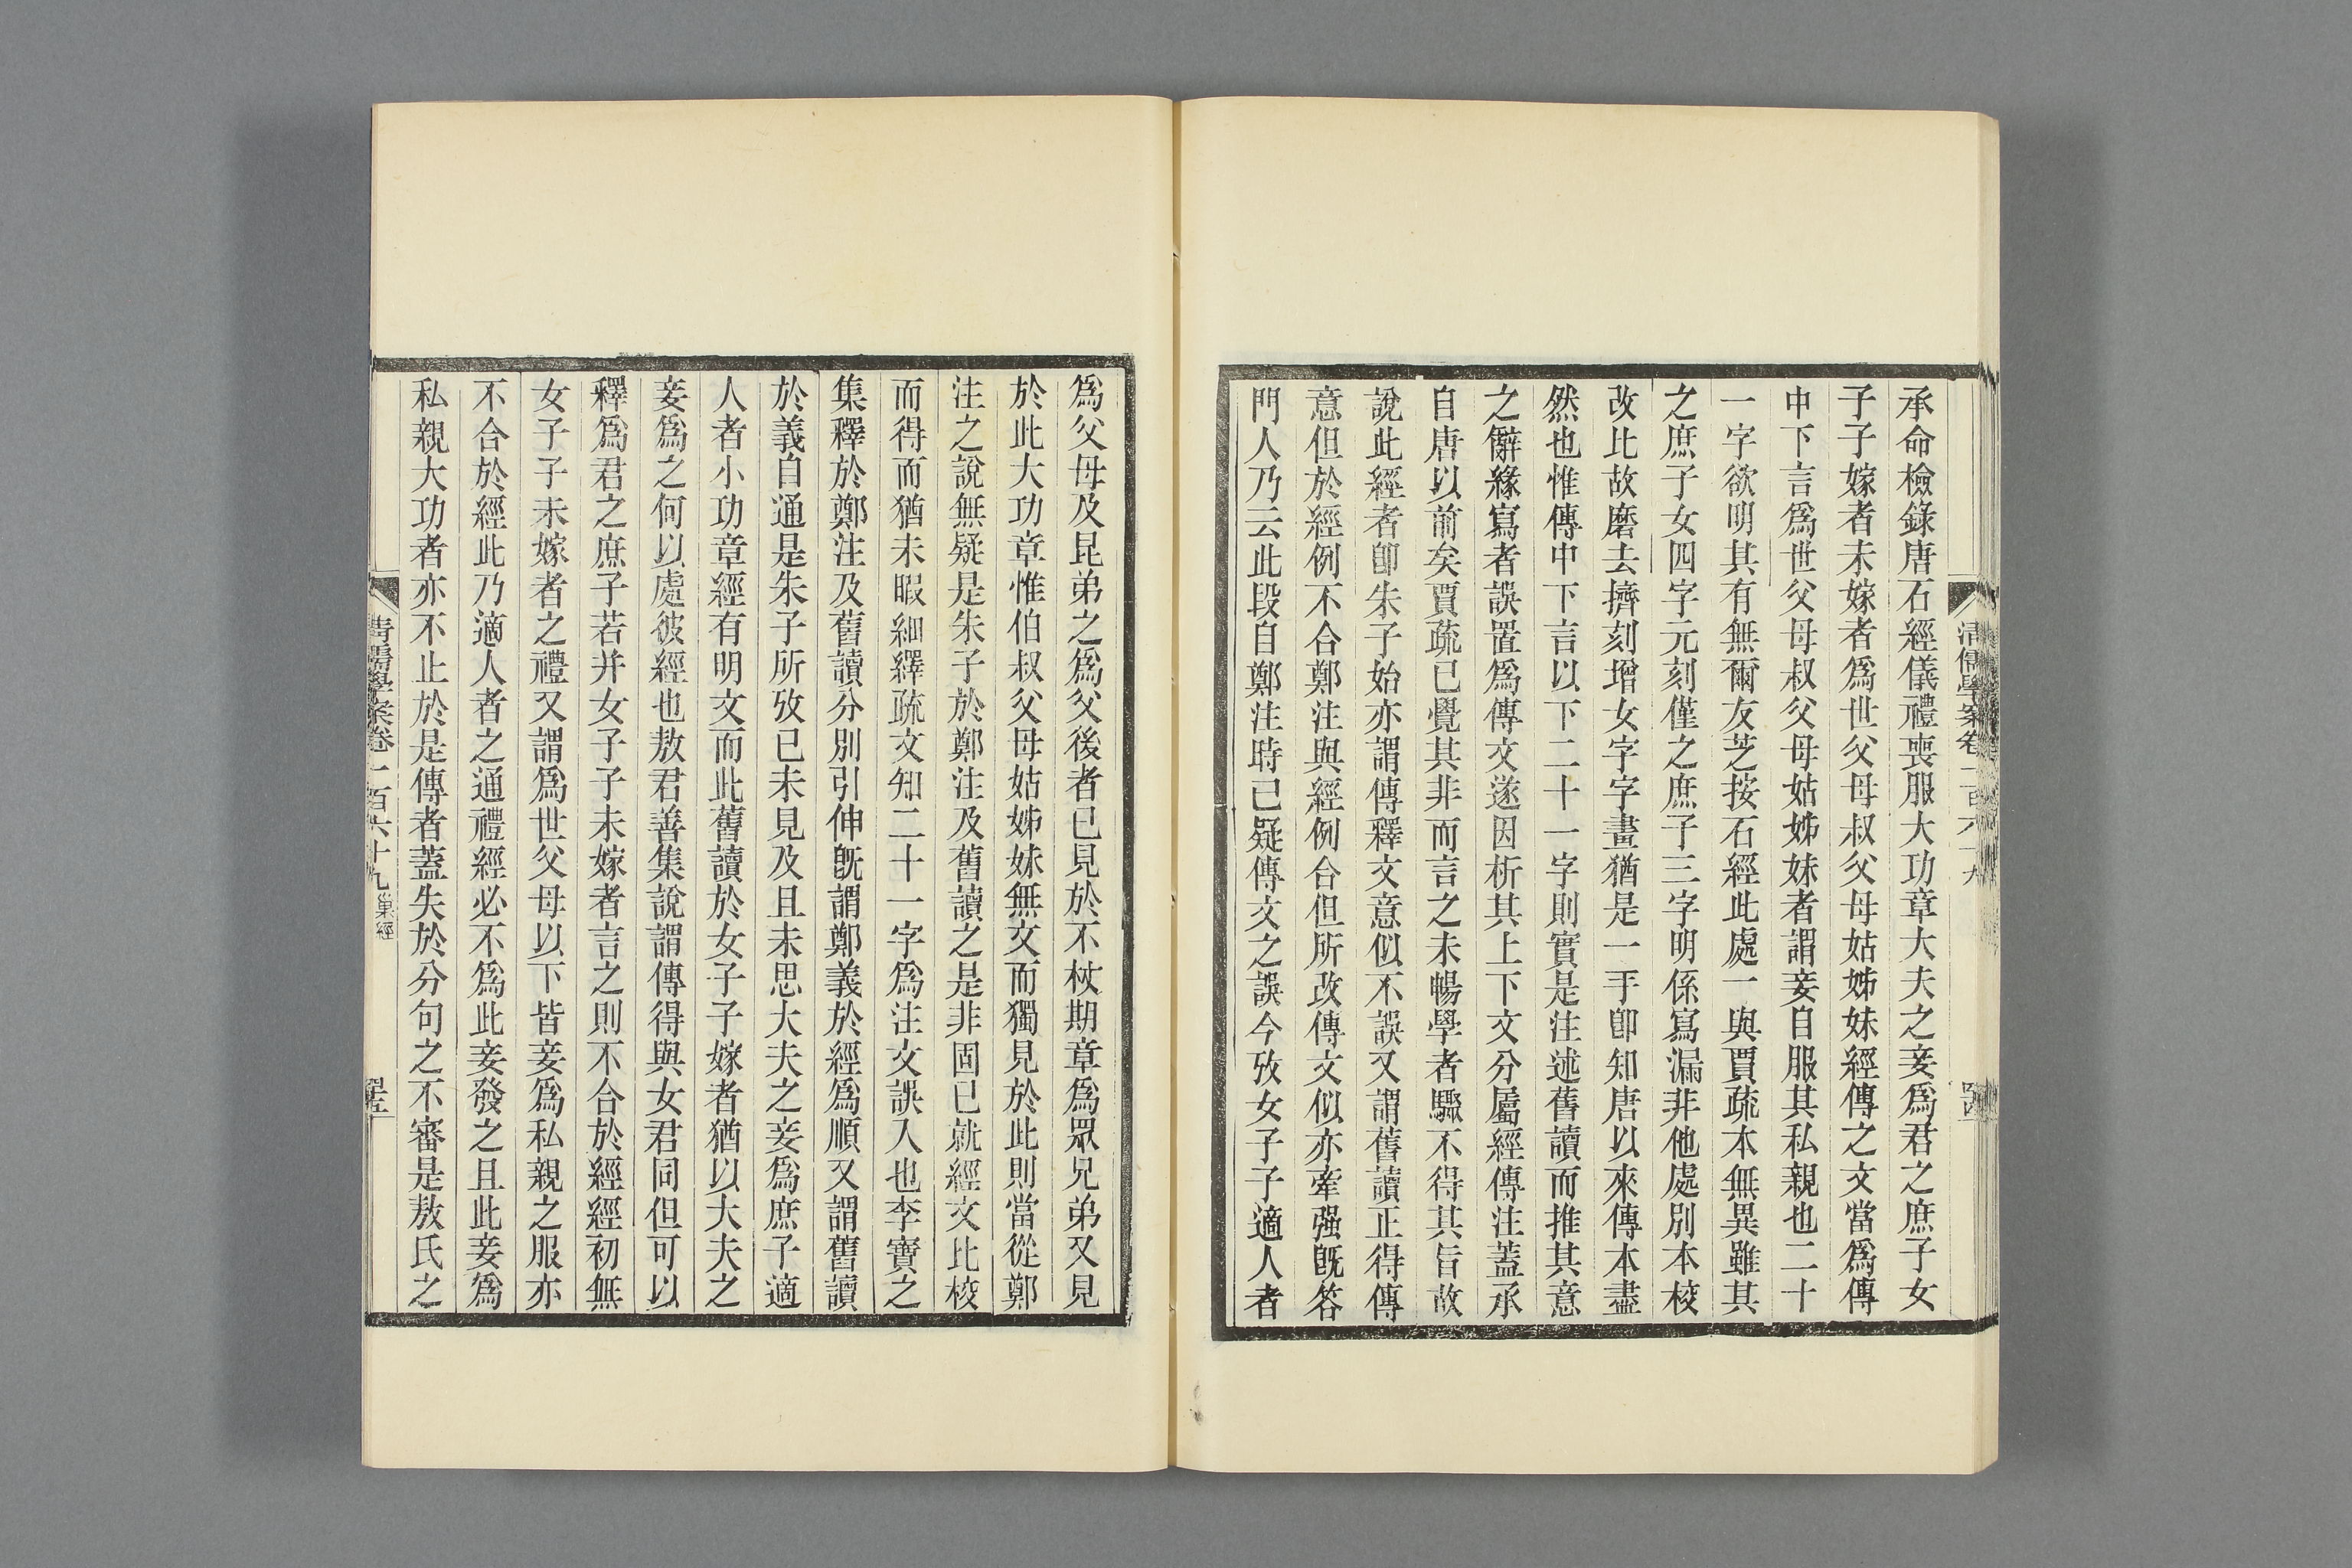 承命檢錄唐石經儀禮喪服大功章大夫之妾爲君之庶子女
子子嫁者未嫁者爲世父母叔父母姑姊妹經傳之文當爲傳
中下言爲世父母叔父母姑姊妹者謂妾自服其私親也二十
一字欲明其有無爾友芝按石經此處一與賈疏本無異雖其
之庶子女四字元刻僅之庶子三字明係寫漏非他處別本校
改比故磨去擠刻增女字字畫猶是一手卽知唐以來傳本盡
然也惟傳中下言以下二十一字則實是注述舊讀而推其意
之辭緣寫者誤置爲傳文遂因析其上下文分屬經傳注蓋承
自唐以前矣賈疏已覺其非而言之未暢學者驟不得其旨故
說此經者卽朱子始亦謂傳釋文意似不誤又謂舊讀正得傳
意但於經例不合鄭注與經例合但所改傳文似亦牽强旣答
門人乃云此段自鄭注時已疑傳文之誤今攷女子子適人者
清儒學案卷一百六十九
爲父母及昆弟之爲父後者已見於不杖期章爲眾兄弟又見
於此大功章惟伯叔父母姑姊妹無文而獨見於此則當從鄭
注之說無疑是朱子於鄭注及舊讀之是非固已就經文比校
而得而猶未暇細繹疏文知二十一字爲注文誤入也李寶之
集釋於鄭注及舊讀分別引伸旣謂鄭義於經爲順又謂舊讀
於義自通是朱子所攷已未見及且未思大夫之妾爲庶子適
人者小功章經有明文而此舊讀於女子子嫁者猶以大夫之
妾爲之何以處彼經也敖君善集說謂傳得與女君同但可以
釋爲君之庶子若并女子子未嫁者言之則不合於經經初無
女子子未嫁者之禮又謂爲世父母以下皆妾爲私親之服亦
不合於經此乃適人者之通禮經必不爲此妾發之且此妾爲
私親大功者亦不止於是傳者蓋失於分句之不審是敖氏之
清儒學案卷一百六十九 巢經